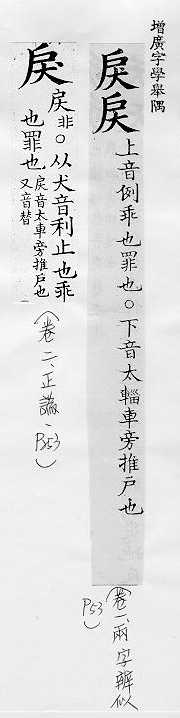 增廣字學舉隅
戾戻
上音例乖也罪也。下音太輜車旁推戶也
(卷一、兩字辨似
P53)
戾
戻非。从犬音利止也乖
也罪也戻音太車旁推戶也
又音替
(卷二、正譌、